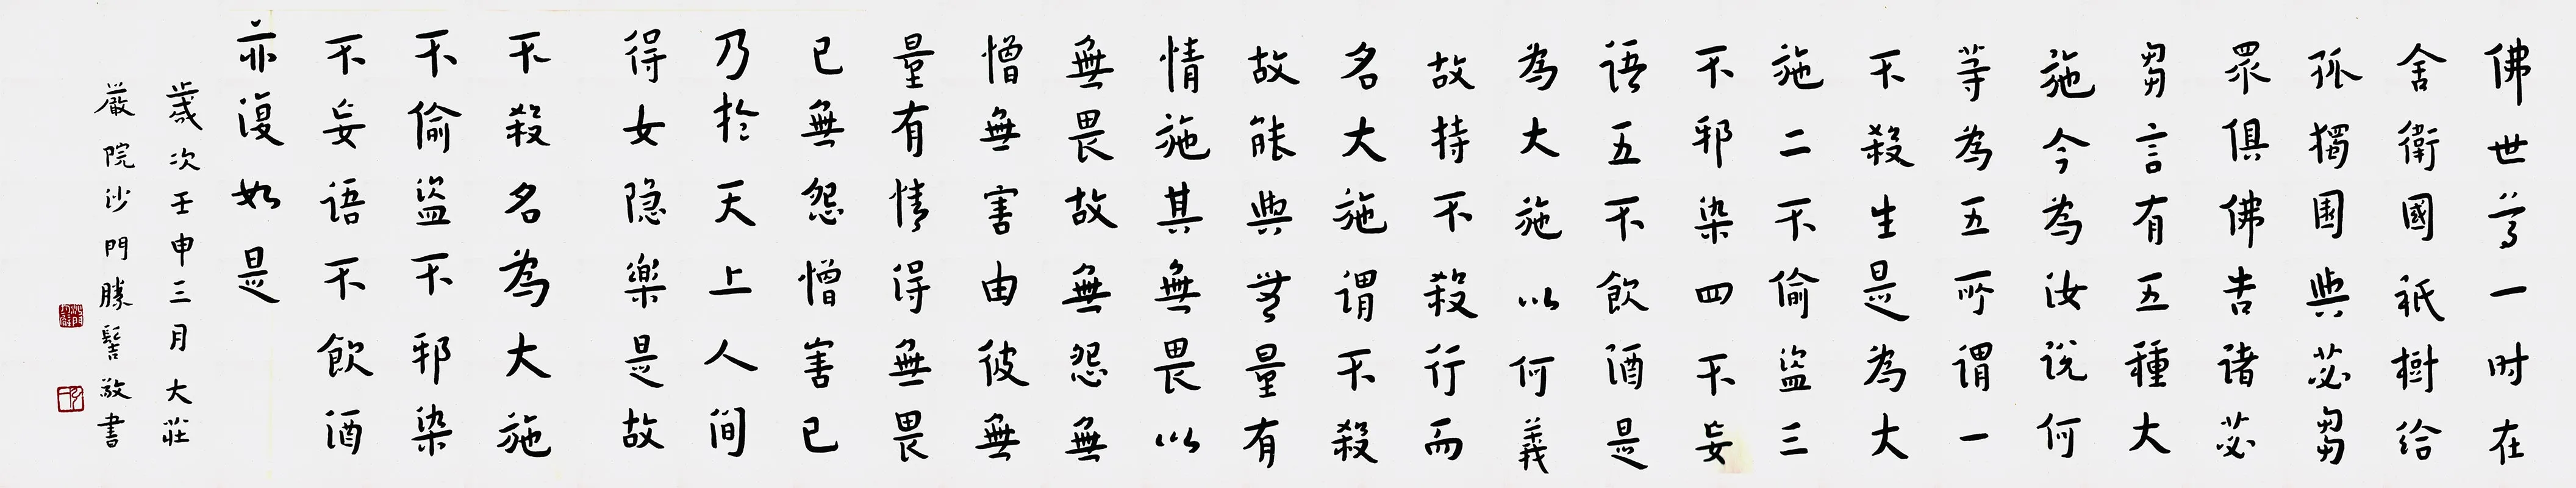 佛世尊一时在
舍衛國祇樹给
孤獨園與苾芻
眾俱佛告诸苾
芻言有五種大
施今為汝说何
等為五所谓一
不殺生是為大
施二不偷盜三
不邪染四不妄
语五不飲酒是
為大施以何義
故持不殺行而
名大施谓不殺
故能與無量有
情施其無畏以
無畏故無怨無
憎無害由彼無
量有情得無畏
已無怨憎害已
乃於天上人间
得安隐樂是故
不殺名為大施
不偷盜不邪染
不妄语不飲酒
亦復如是
歲次壬申三月大莊
嚴院沙門勝髻敬書